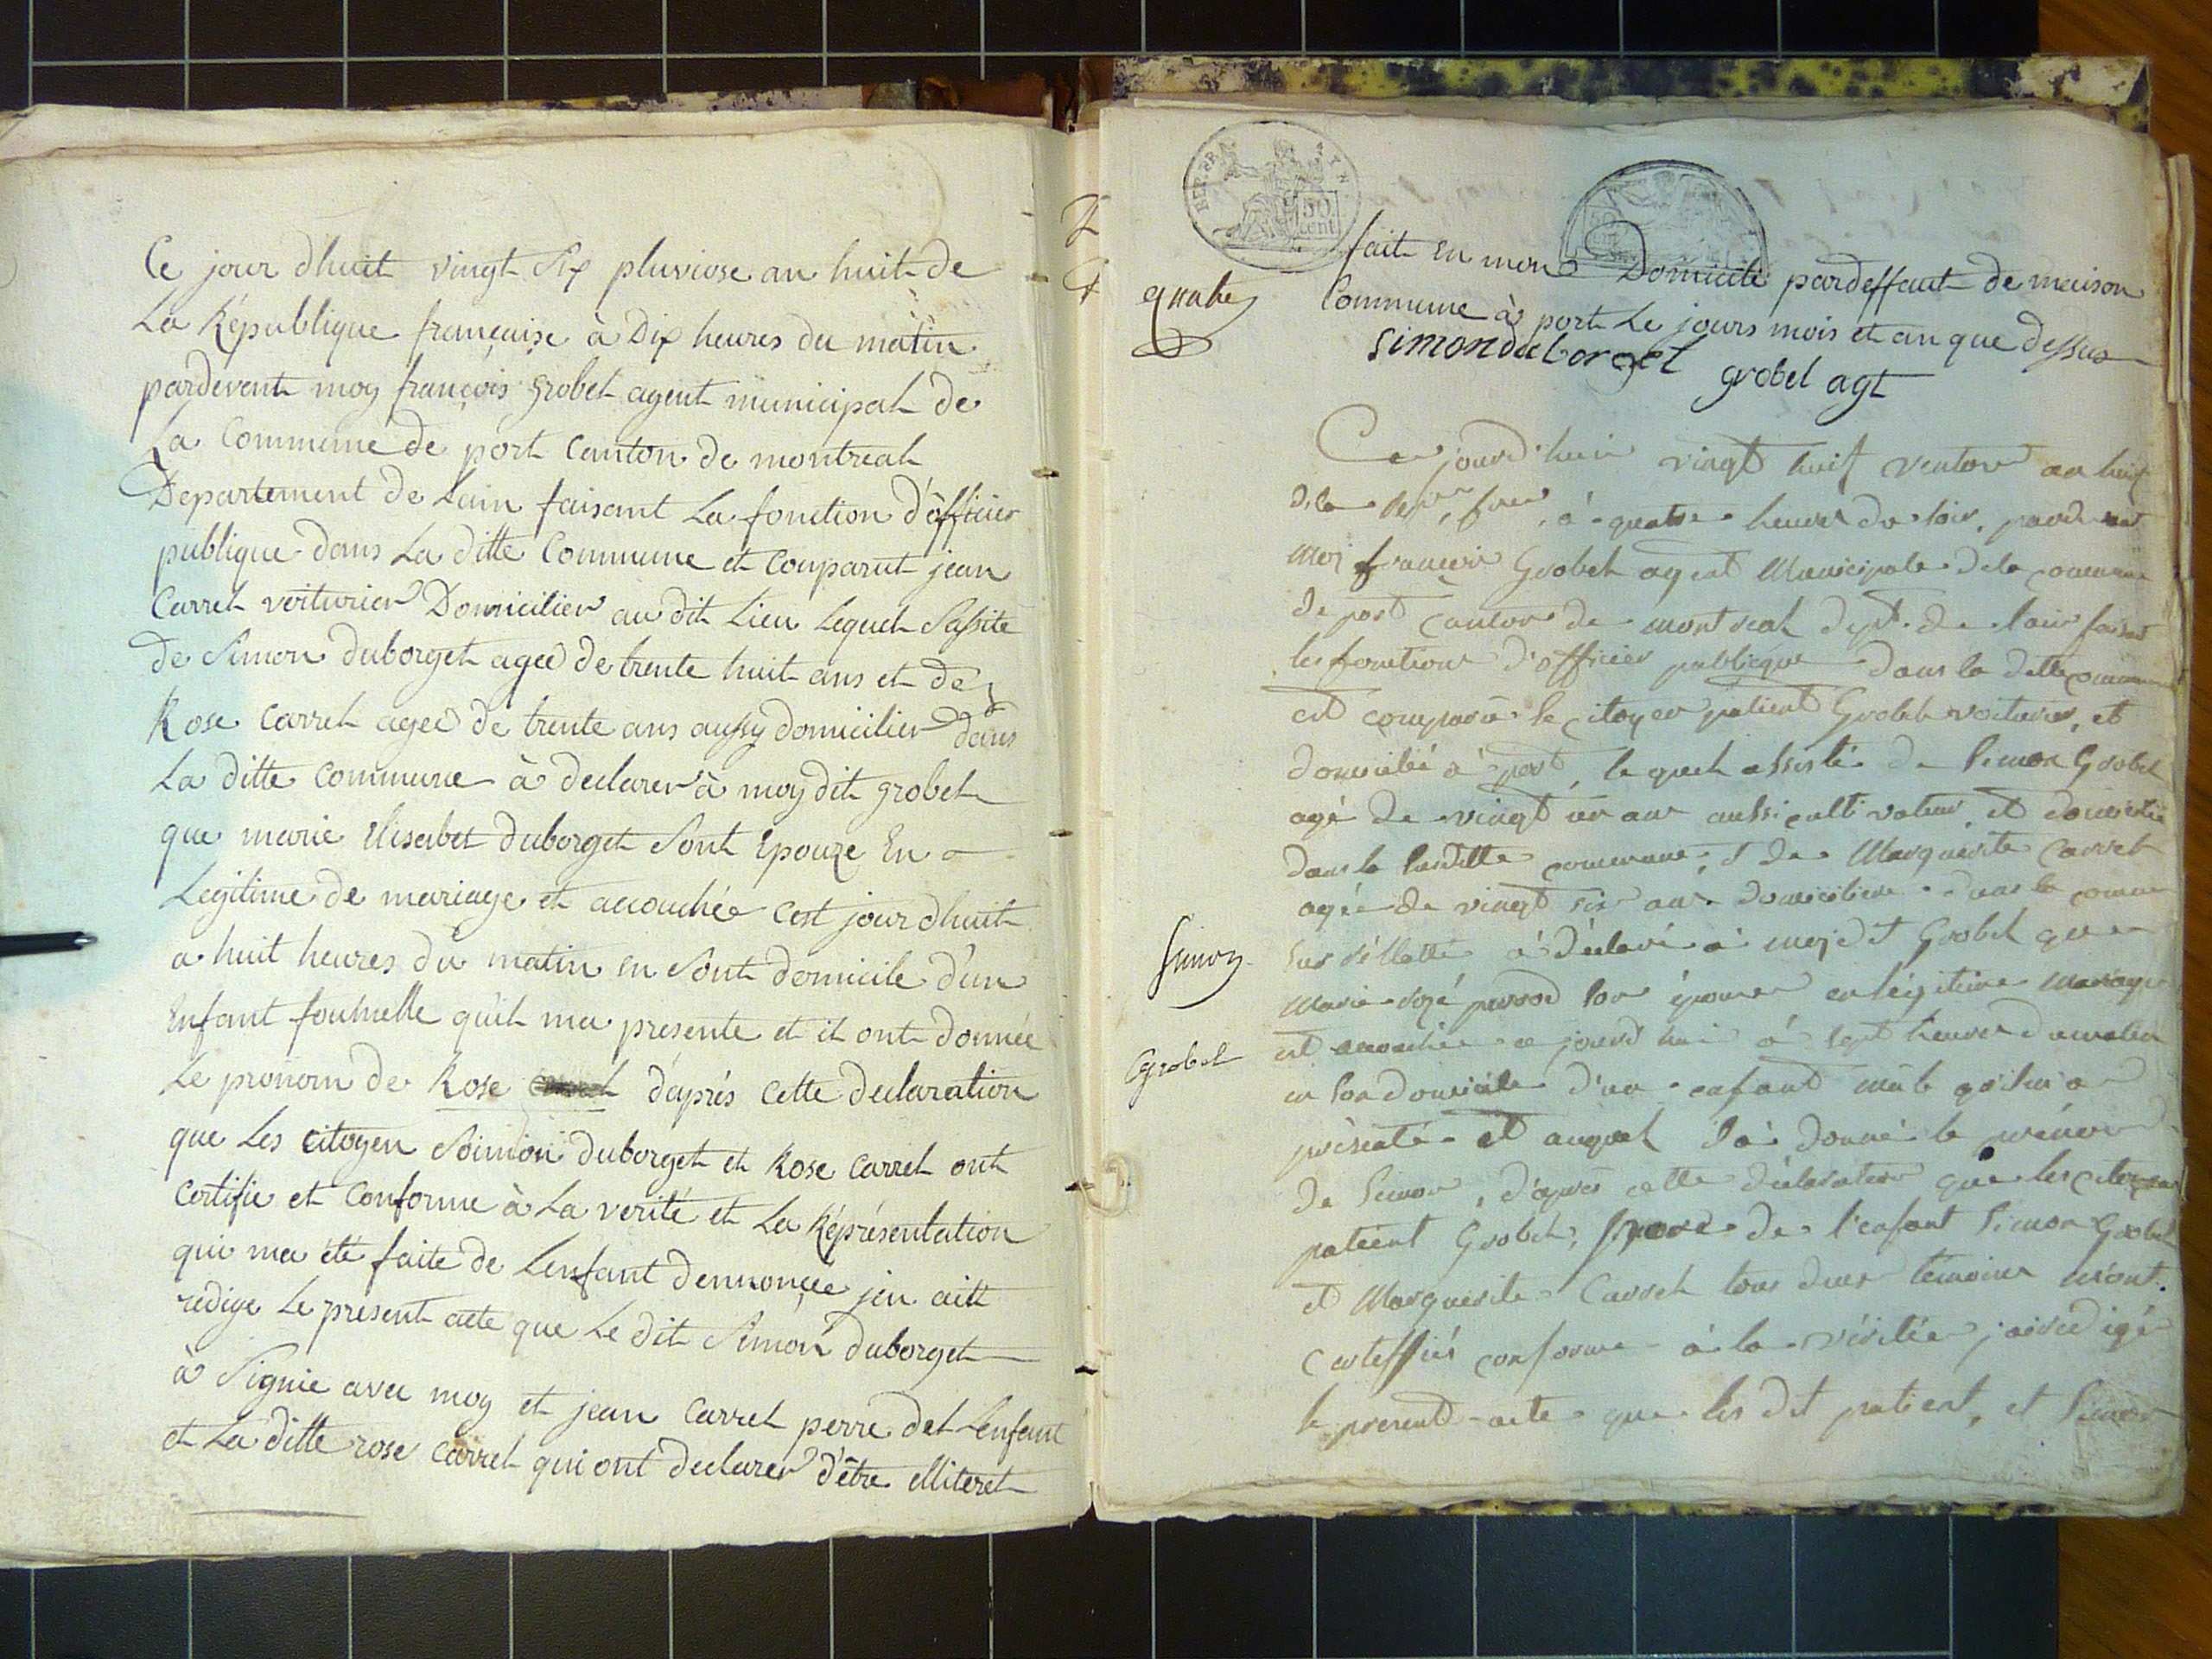 Ce jour dhuit vingt Six pluviose an huit de
La République française à Dix heures du matin
pardevent moy françois grobet agent municipal de
La Commune de port Canton de montreal
Département de Lain faisant La fonction d'officier
publique dans La ditte Commune et Comparut jean
Carrel voiturier Domicilier au dit Lieu Lequel Sassite
de Simon duborget ageé de trente huit ans et de
Rose Carrel ageé de trente ans aussy domicilier dans
La ditte Commune à declarer à moy dit grobet
que marie Elisabet duborget Sont Epouze En
Legitime de mariage et accouchée cest jour dhuit
a huit heures du matin en Sont domicile d'un
Enfant foumelle quil ma presente et il ont donnée
Le pronom de Rose d'aprés Cette declaration
que Les citoyen Soimon duborget et Rose Carrel ont
Certifie et Conforme à La verité et La Réprésentation
qui ma été faite de Lenfant dennonçée jen aitt
redige Le present acte que Le dit Simon duborget
à Signie avec moy et jean Carrel perre det Lenfant
et La ditte rose Carrel qui ont declarer d'être elliteret
REP. FRA
50 cent
fait En mon Domicile pardeffaut de maison
Commune à port Le jours mois et an que dessus
Simon duborget grobet agt
Ce jourd'hui vingt huit ventose an huit
de la Rep. franc. à quatre heures du soir, pardevant
moi françois Grobet agent Municipale de la commune
de port canton de montreal dept. de lain faisant
les fonctions d'officier publique dans la ditte commune
est comparu le citoyen patient Grobet voiturier, et
domicilié à port, le quel assisté de Simon Grobet
agé de vingt un ans aussi cultivateur, et domicilié
dans la susditte commune, et de Marguerite Carrel
agée de vingt six ans domiciliere dans la commune
à déclaré à moi dit Grobet que
Simon
Marie son épouse en légitime mariage
Grobet
est accouchée ce jourd'hui à sept heures du matin
en son domicile d'un enfant mâle qu'il m'a
présenté et auquel il a donné le prénom
de Simon, d'apres cette déclaration que les citoyens
patient Grobet, pere de l'enfant Simon Grobet
et Marguerite Carrel tous deux témoins m'ont
certeffiés conforme à la véritée j'ai redigé
le present acte que les dit patient, et Simon